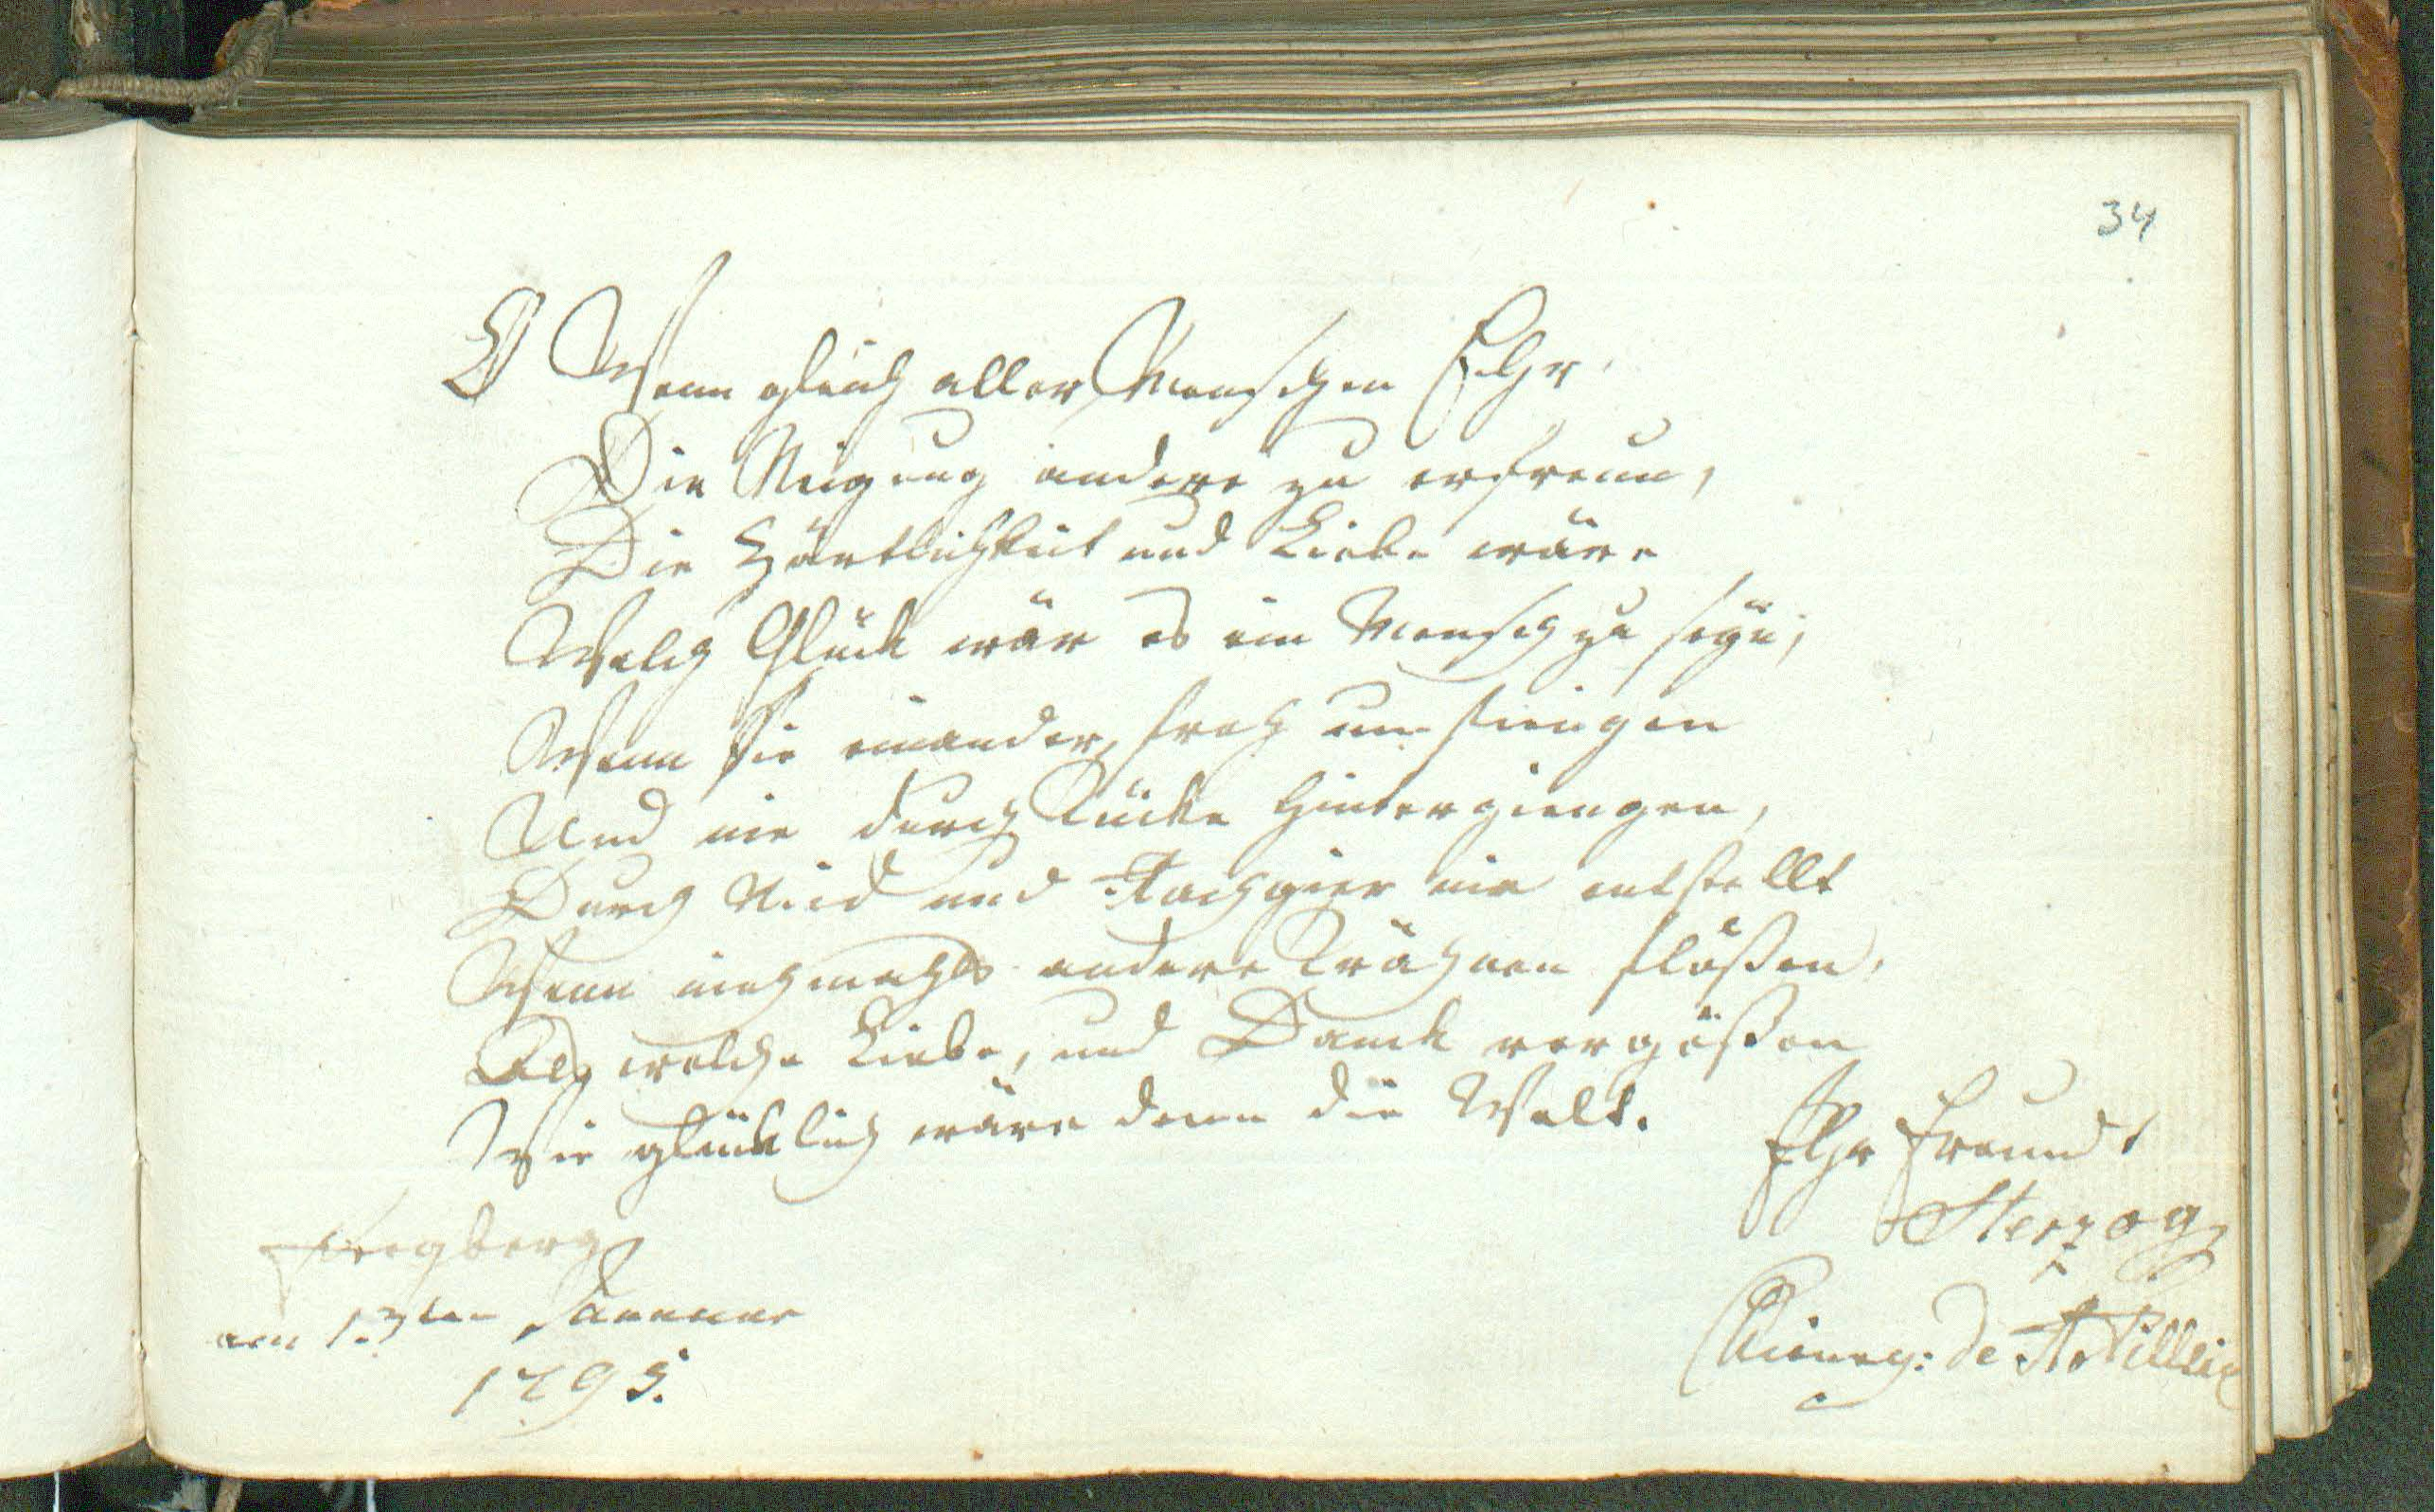 34
O Wenn gleich aller Menschen Ehr,
Die Neigung andere zu erfreun,
Die Zärtlichkeit und Liebe wäre
Welch Glück wär es ein Mensch zu seÿn;
Wenn sie einander froh umfiengen
Und nie durch Tücke hintergiengen,
Durch Neid und Rachgier nie entstellt
Wenn niehmahls andere Trähnen flößen,
Als welche Liebe, und Danck vergößen
Wie glücklich wäre denn die Welt.
Ihr Freundt
Herzog
Chirurg: de Artillie
am 13ten Januar
1795.